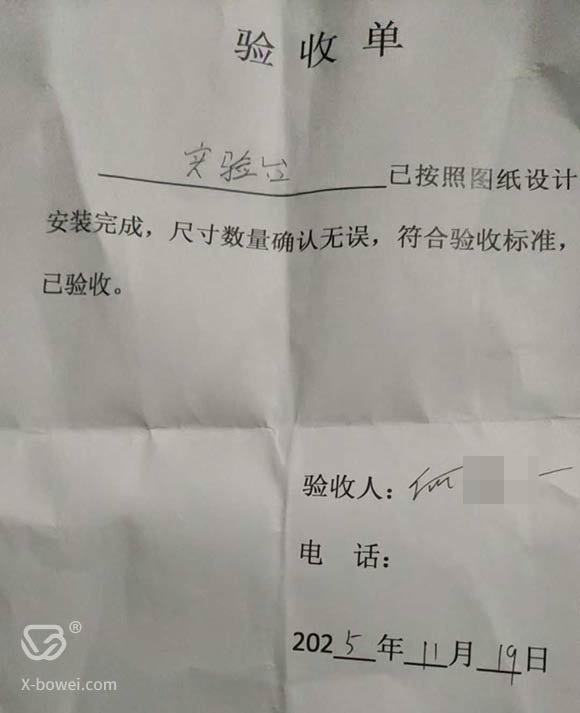 验收单
实验台已按照图纸设计
安装完成，尺寸数量确认无误，符合验收标准，
已验收。
验收人：何
电 话：
2025年11月19日
®
X-bowei.com